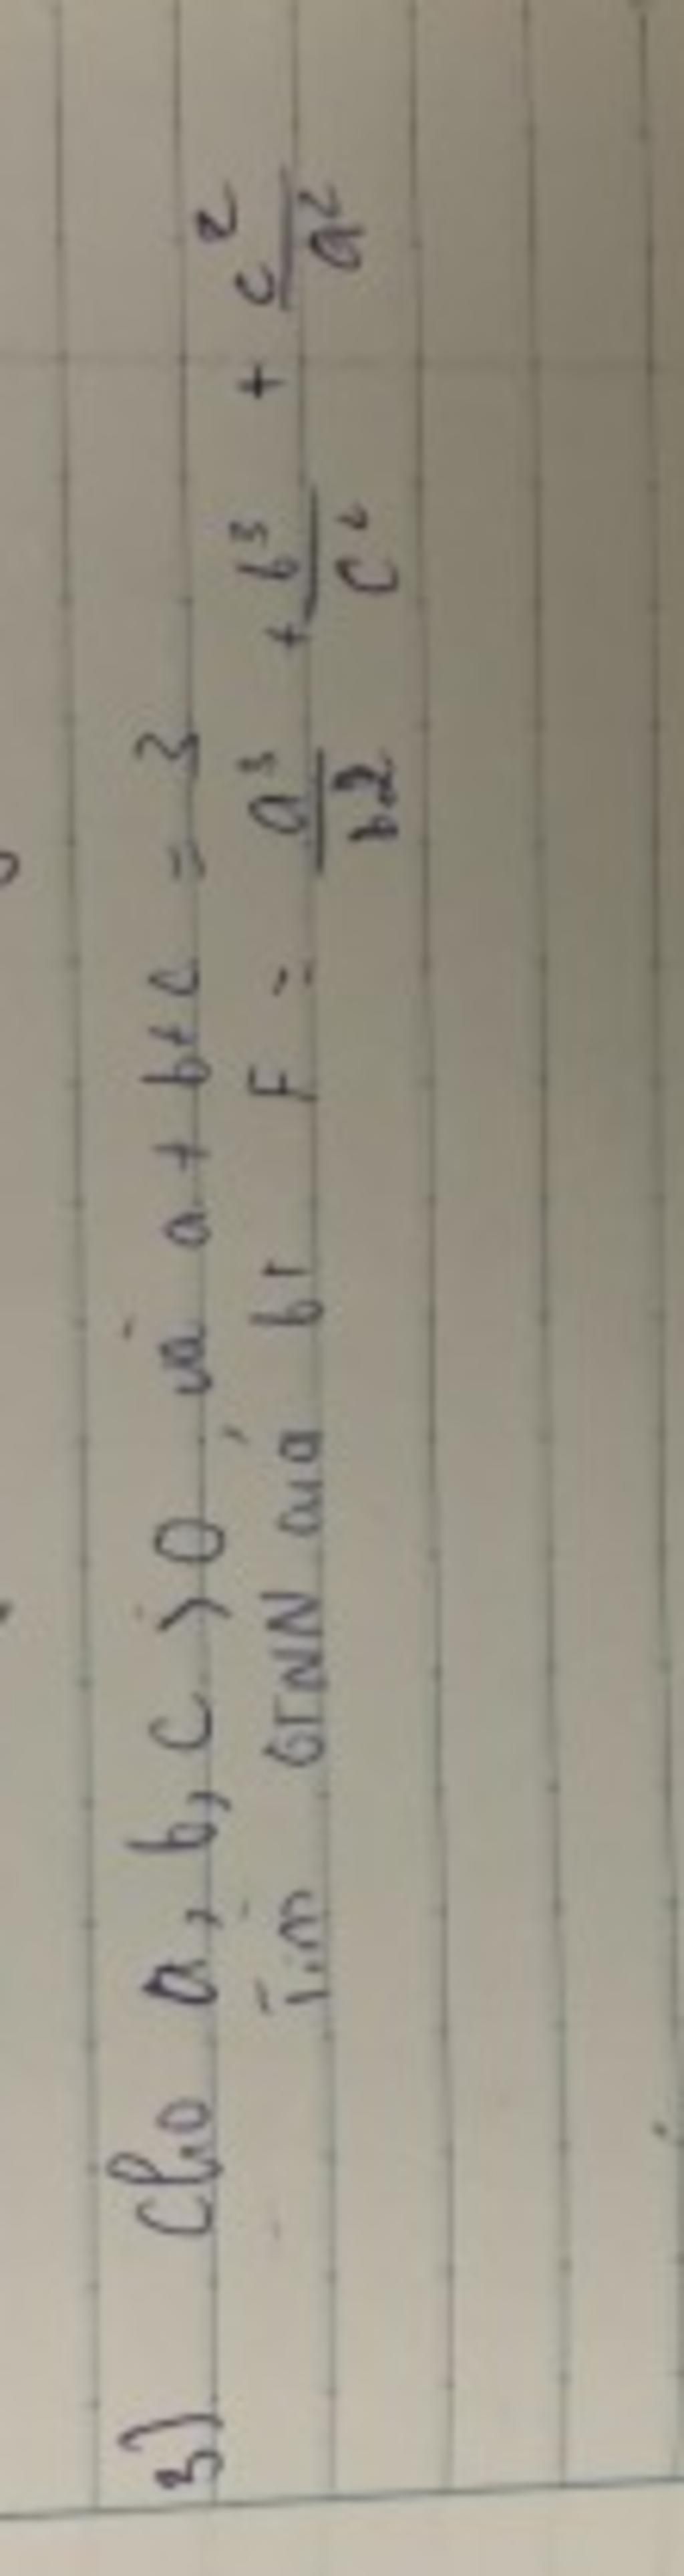 3) Cho a, b, c > 0 và a + b + c = 3
Tìm GTNN của bt F = a³/b² + b³/c² + c²/a²